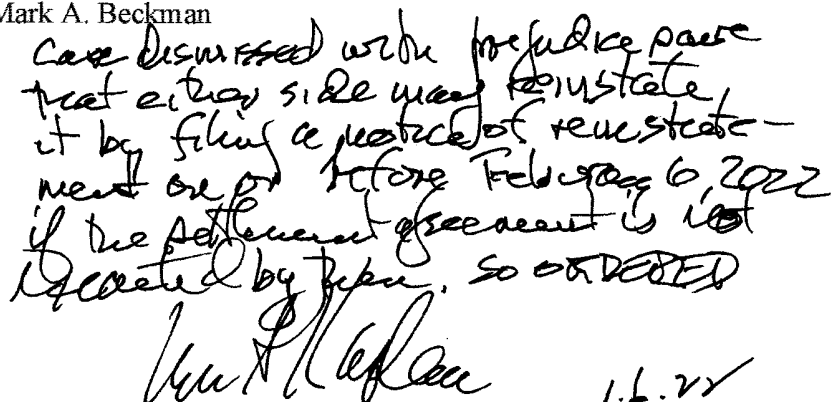 Mark A. Beckman
Case dismissed with prejudice save
that either side may reinstate
it by filing a notice of reinstate-
ment on or before February 6, 2022
if the settlement agreement is not
executed by then. SO ORDERED
Lewis A. Kaplan
1.6.22